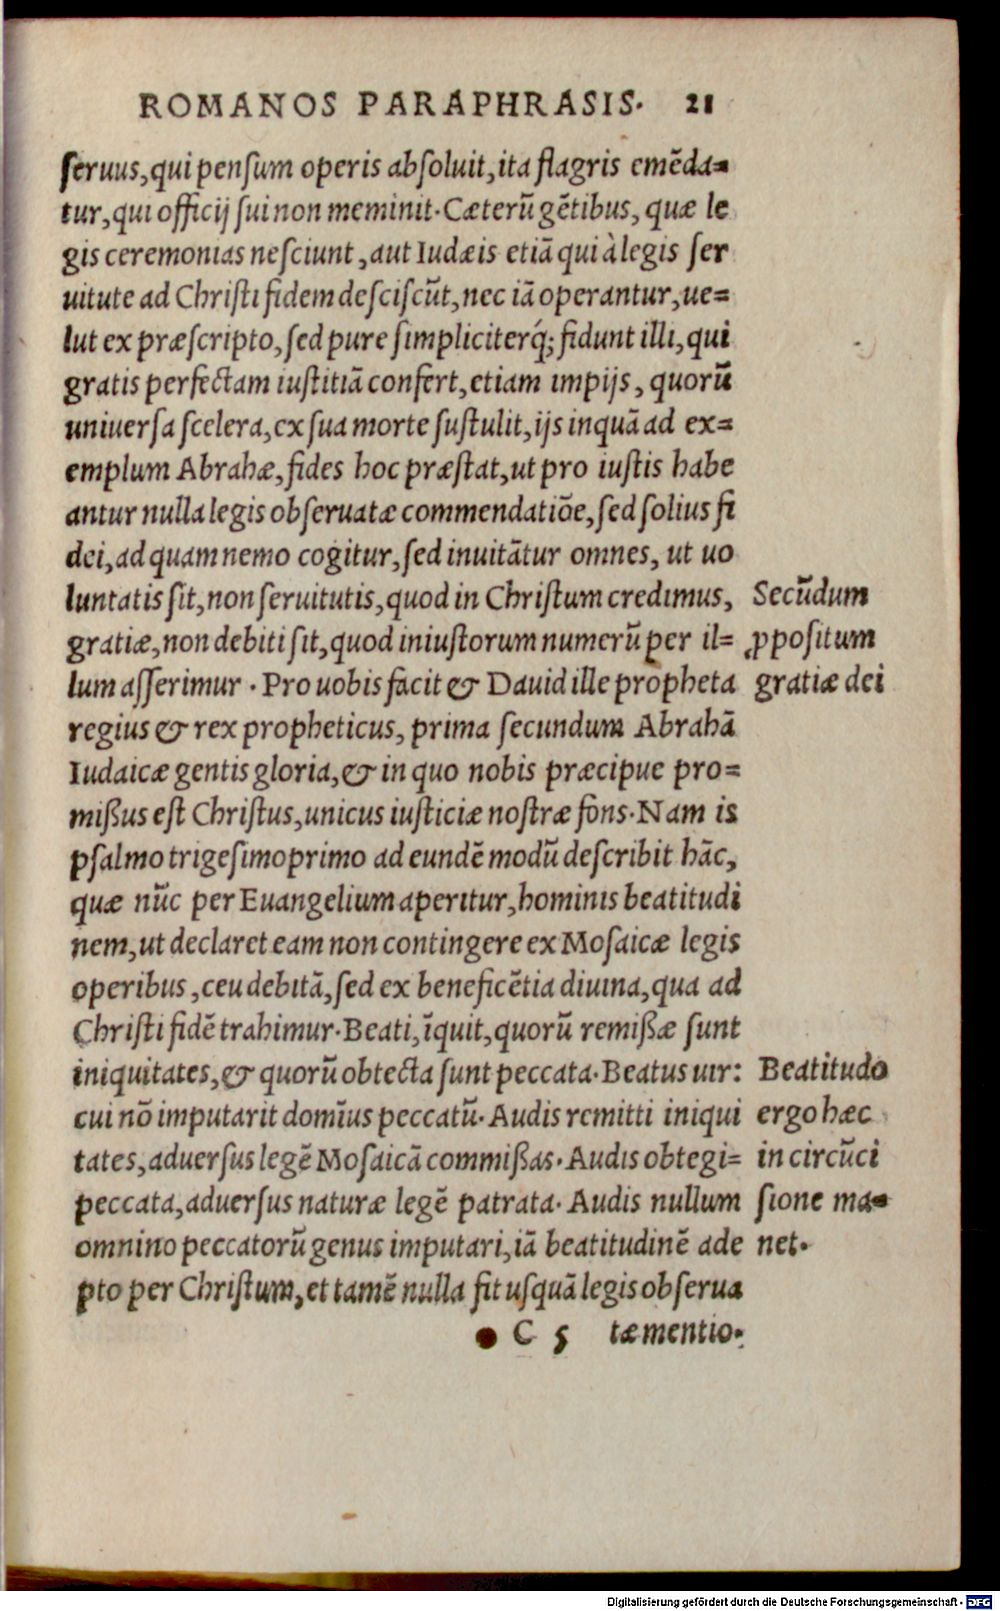 ROMANOS PARAPHRASIS. 21
ſeruus, qui penſum operis abſoluit, ita flagris emẽda=
tur, qui officij ſui non meminit. Cæterũ gẽtibus, quæ le
gis ceremonias neſciunt, aut Iudæis etiã qui à legis ſer
uitute ad Chriſti fidem deſciſcũt, nec iã operantur, ue=
lut ex præſcripto, ſed pure ſimpliciterq́; fidunt illi, qui
gratis perfectam iuſtitiã confert, etiam impijs, quorũ
uniuerſa ſcelera, ex ſua morte ſuſtulit, ijs inquã ad ex=
emplum Abrahæ, fides hoc præſtat, ut pro iuſtis habe
antur nulla legis obſeruatæ commendatiõe, ſed ſolius fi
dei, ad quam nemo cogitur, ſed inuitãtur omnes, ut uo
luntatis ſit, non ſeruitutis, quod in Chriſtum credimus,
gratiæ, non debiti ſit, quod iniuſtorum numerũ per il=
lum aſſerimur. Pro uobis facit & Dauid ille propheta
regius & rex propheticus, prima ſecundum Abrahã
Iudaicæ gentis gloria, & in quo nobis præcipue pro=
mißus eſt Chriſtus, unicus iuſticiæ noſtræ fons. Nam is
pſalmo trigeſimoprimo ad eundẽ modũ deſcribit hãc,
quæ nũc per Euangelium aperitur, hominis beatitudi
nem, ut declaret eam non contingere ex Moſaicæ legis
operibus, ceu debitã, ſed ex beneficẽtia diuina, qua ad
Chriſti fidẽ trahimur. Beati, ĩquit, quorũ remißæ ſunt
iniquitates, & quorũ obtecta ſunt peccata. Beatus uir:
cui nõ imputarit domĩus peccatũ. Audis remitti iniqui
tates, aduerſus legẽ Moſaicã commißas. Audis obtegi=
peccata, aduerſus naturæ legẽ patrata. Audis nullum
omnino peccatorũ genus imputari, iã beatitudinẽ ade
pto per Chriſtum, et tamẽ nulla fit uſquã legis obſerua
C 5 tæ mentio.
Secũdum
ꝓpoſitum
gratiæ dei
Beatitudo
ergo hæc
in circũci
ſione ma=
net.
Digitalisierung gefördert durch die Deutsche Forschungsgemeinschaft - DFG